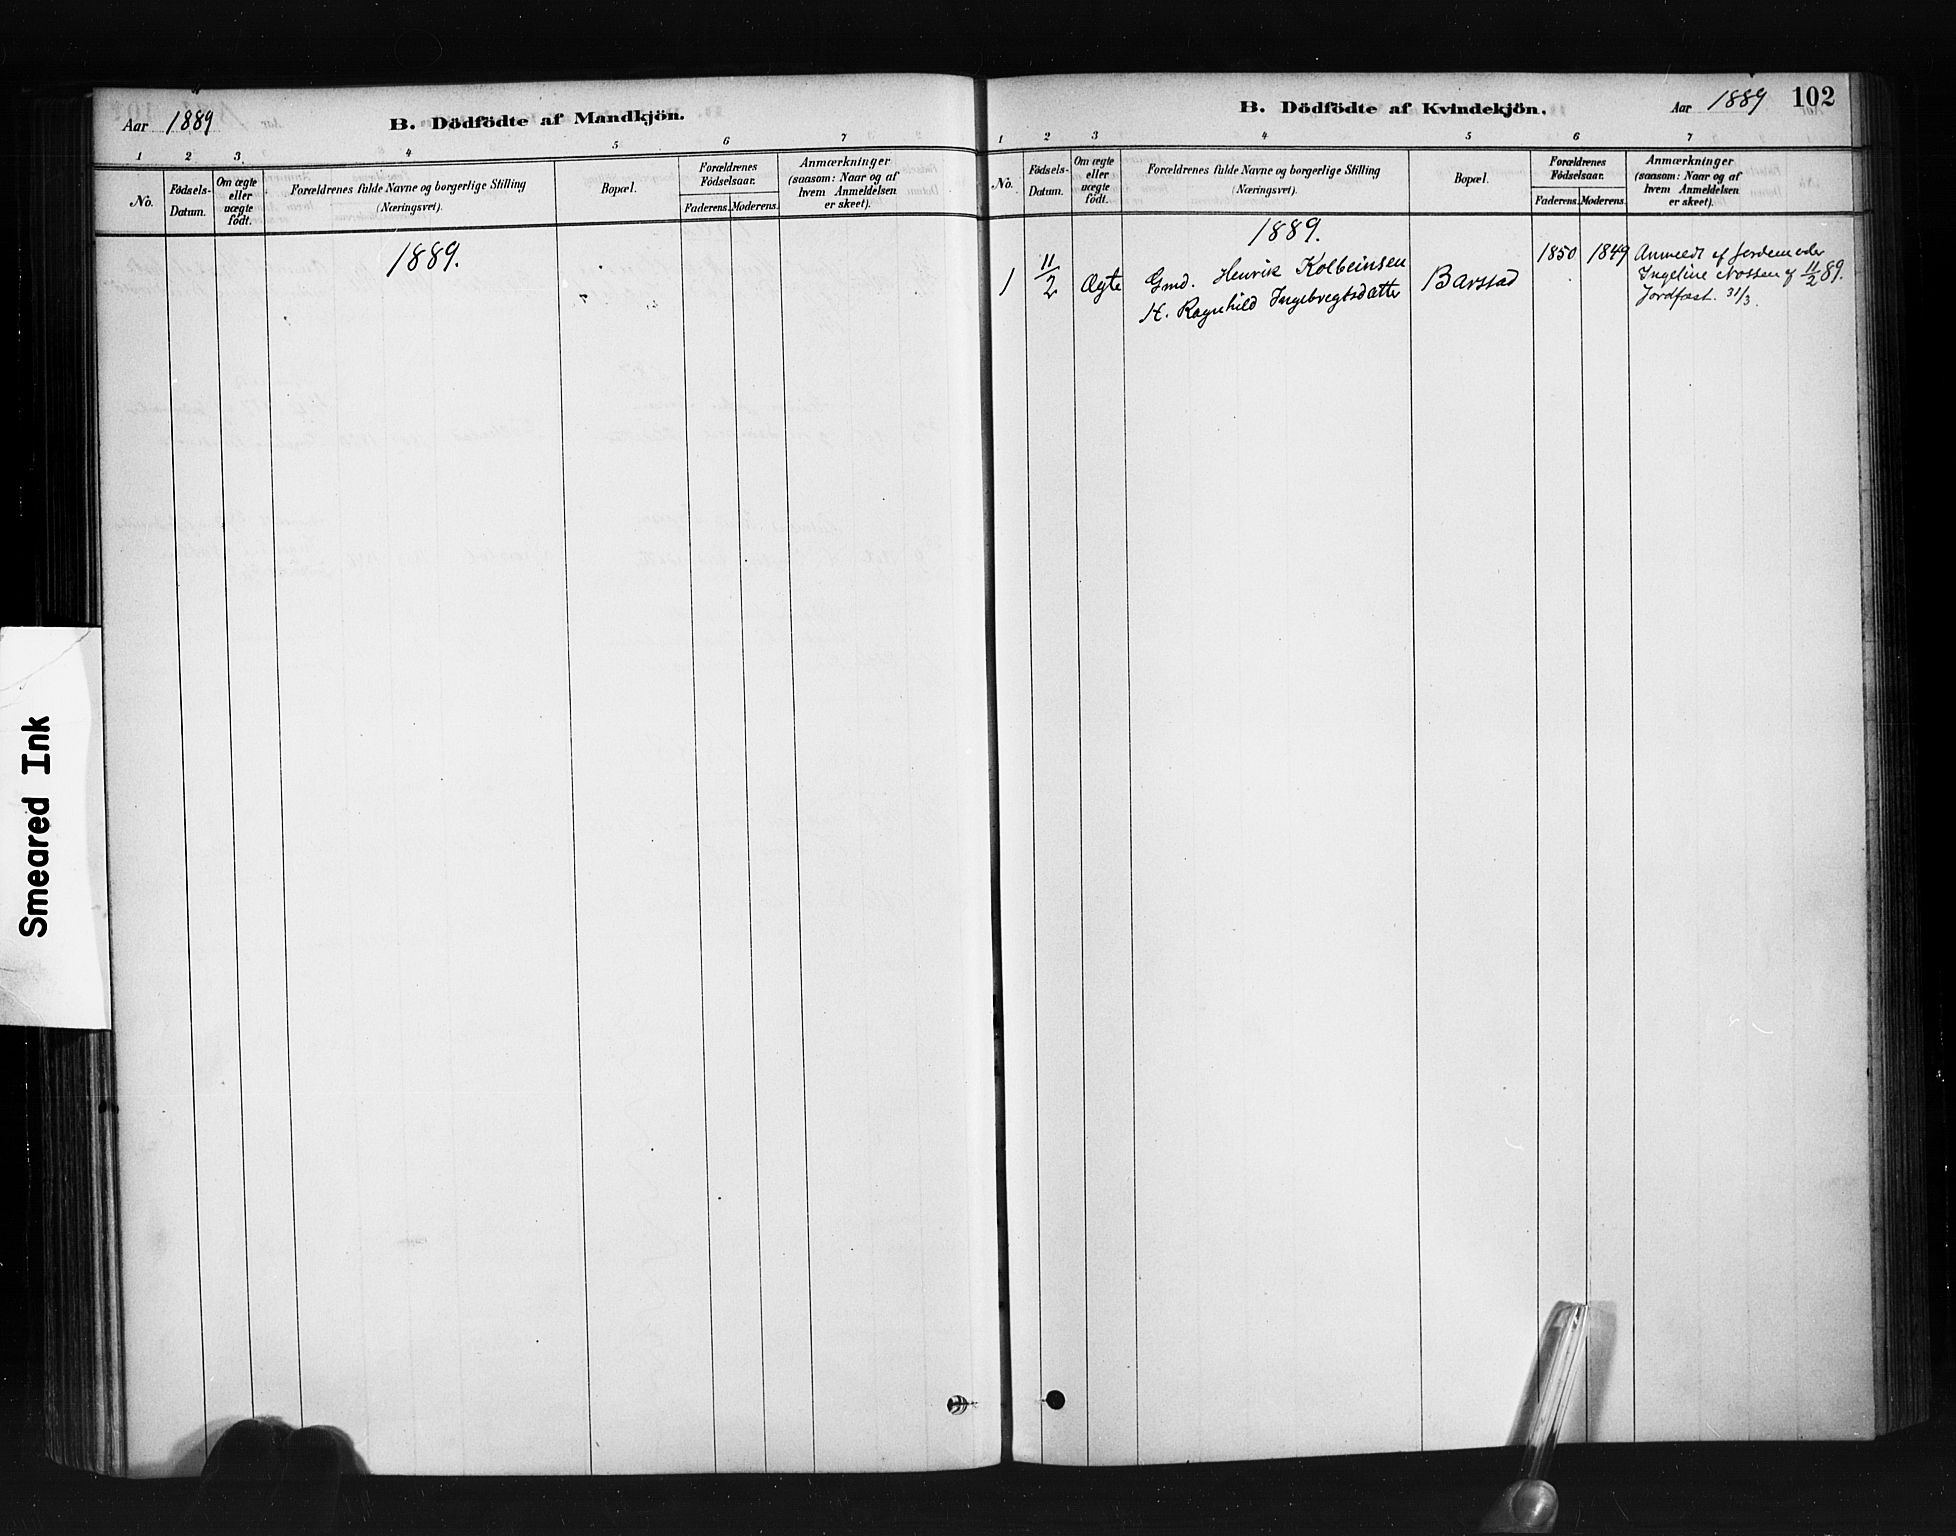 Smeared Ink
Aar 1889
B. Dödfödte af Mandkjön.
1 2 3. 4 5 6 7
No.
Födsels-
Datum.
Om ægte
eller
uægte
födt.
Forældrenes fulde Navne og borgerlige Stilling
(Næringsvei).
Bopæl.
Forældrenes
Födselsaar.
Faderens. Moderens.
Anmærkninger
(saasom: Naar og af
hvem Anmeldelsen
er skeet).
1889.
B. Dödfödte af Kvindekjön.
Aar 1889 102
1 2 3 4 5 6 7
No.
Födsels-
Datum.
Om ægte
eller
uægte
födt.
Forældrenes fulde Navne og borgerlige Stilling
(Næringsvei).
Bopæl.
Forældrenes
Födselsaar.
Faderens. Moderens.
Anmærkninger
(saasom: Naar og af
hvem Anmeldelsen
er skeet).
1889.
1 11/2 Ægte Gmd. Henrik Kolbeinsen
H. Ragnhild Ingebregtsdatter
Barstad
1850 1849
Anmeldt af Jordemoder
Ingeline Nossen 11/2 89.
Jordfæst. 31/3.